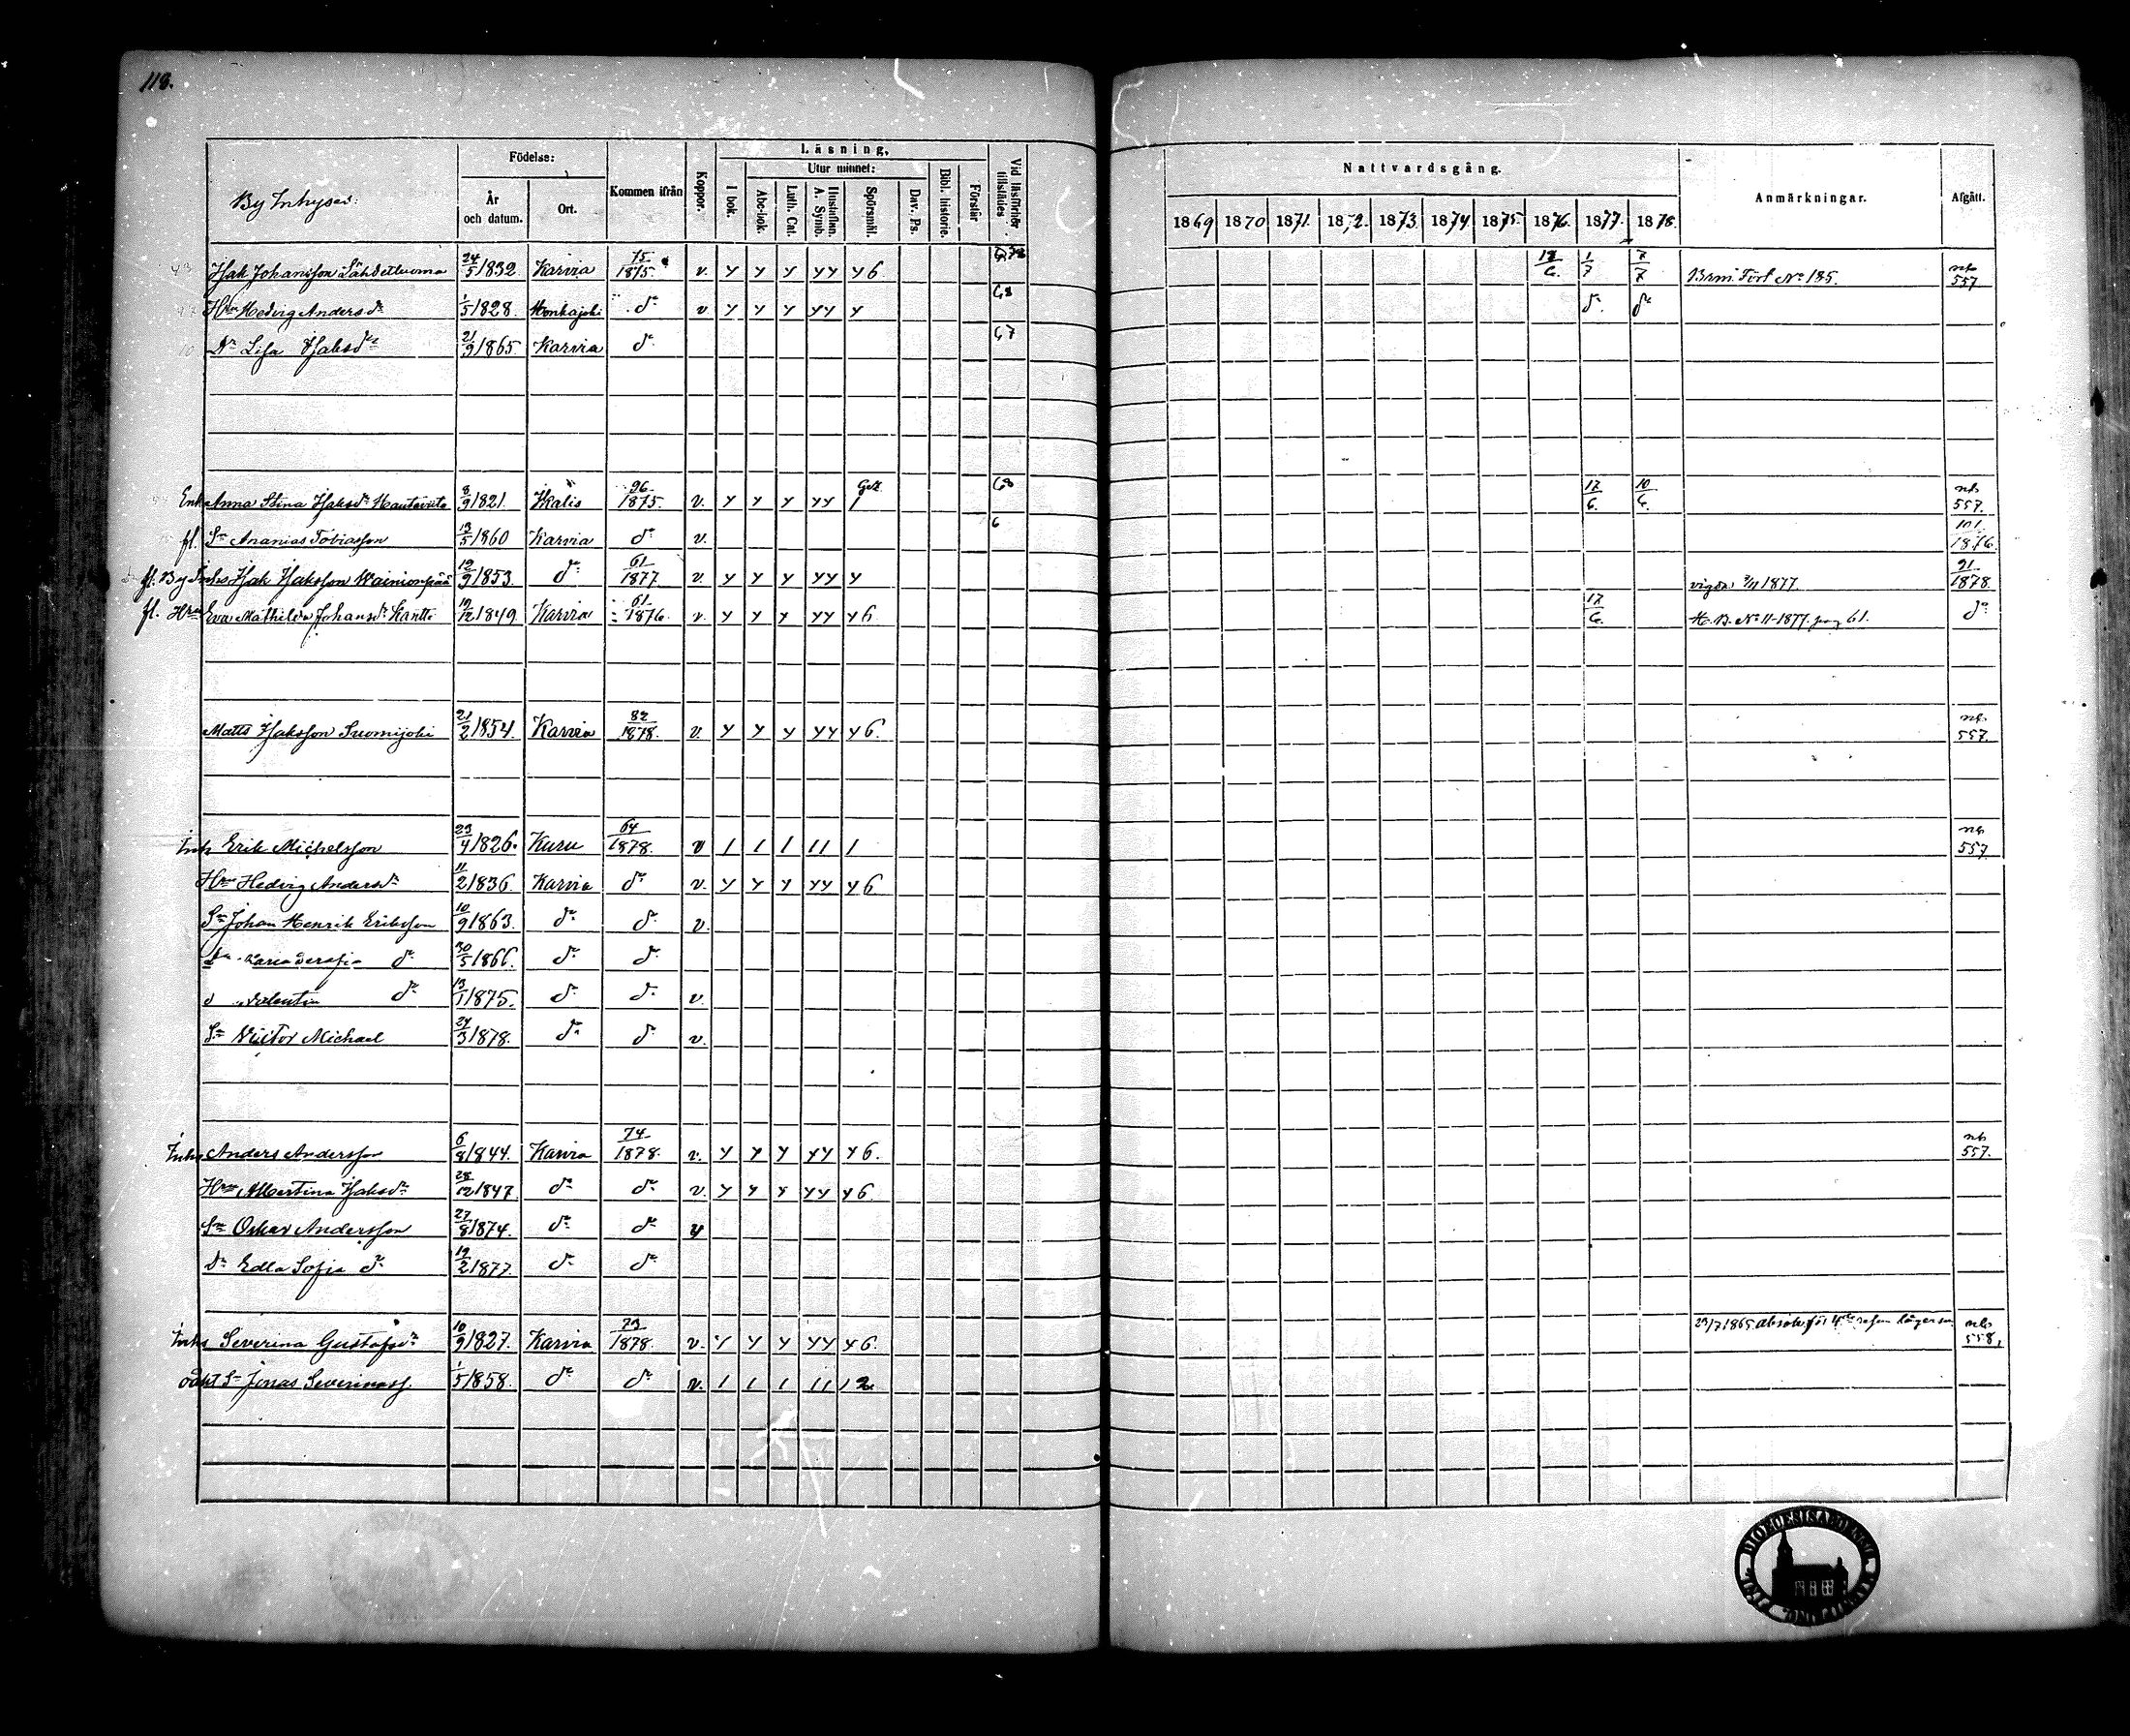 118.
By Inhyses:
Födelse:
År och datum.
Ort.
Kommen ifrån
Koppor.
Läsning,
I bok.
Utur minnet:
Abc-bok.
Luth. Cat.
Hustaflan. A. Symb.
Spörsmål.
Dav. Ps.
Bibl. historie.
Förstår
Vid läsförhör tillstädes
Nattvardsgång.
1869 1870 1871. 1872. 1873. 1874. 1875. 1876. 1877. 1878.
Anmärkningar.
Afgått.
Isak Johansson Lähdetluoma 24/5 1832. Karvia 75/1875. v. y y y yy y 6 1/7 7/7 Brm. Förl No 135. 557
Hru Hedvig Andersdr 1/5 1828. Honkajoki do v y y y yy y 68 do do
Dr Lisa Isaksdr 21/9 1865. Karvia do 67
Enk Anna Stina Isaksdr Hautaviita 8/9 1821. Ikalis 96/1875. v. y y y yy 1 68 17/6. 10/6. 557.
fl. Sn Ananias Tobiasson 13/5 1860 Karvia do v. 6 101/1876.
fl. By Inhs Isak Isaksson Wainionpää 19/9 1853. do 61/1877 v. y y y yy y vigda 1877. 91/1878.
fl. Hru Eva Mathilda Johansdr Kantti 19/12 1849. Karvia 61/1876. v. y y y yy y 6 17/6. H. B. No 11-1877. pag 61. do
Matts Isaksson Suomijoki 21/2 1854. Karvia 82/1878. v. y y y yy y 6. 557.
Inhs Erik Michelsson 23/4 1826. Kuru 64/1878. v 1 1 1 11 1 557
Hru Hedvig Andersdr 11/2 1836. Karvia do v. y y y yy y 6
Sn Johan Henrik Eriksson 10/9 1863. do do v.
Serafia do 30/5 1866. do do
Valentin do 13/1 1875. do do v.
Sn Victor Michael 24/3 1878. do do v.
Inhs Anders Andersson 6/8 1844. Karvia 74/1878. v. y y y yy y 6. 557.
Hru Albertina Isaksdr 28/12 1847 do do v. y y y yy y 6
Sn Oskar Andersson 27/8 1874. do do v
Dr Edla Sofia do 19/2 1877. do do
Inhs Severina Gustafsdr 10/9 1827. Karvia 73/1878. v. y y y yy y 6. 23/7 1865 558,
oäkt Sn Jonas Severinass. 1/5 1858. do do v. 1 1 1 11 1 2